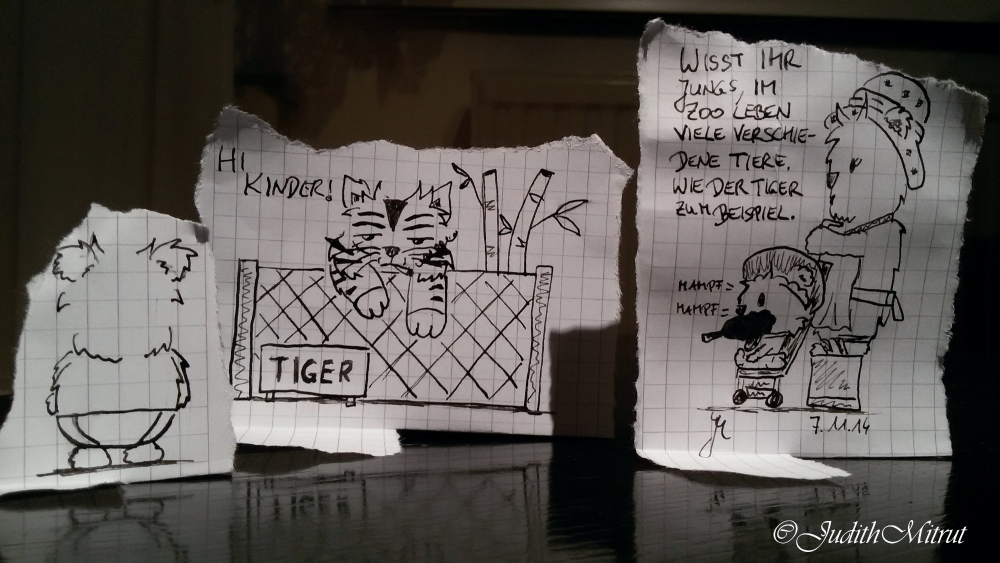 HI
KINDER!
TIGER
WISST IHR
JUNGS, IM
ZOO LEBEN
VIELE VERSCHIE-
DENE TIERE.
WIE DER TIGER
ZUM BEISPIEL.
MAMPF
MAMPF
7.11.14
©JudithMitrut